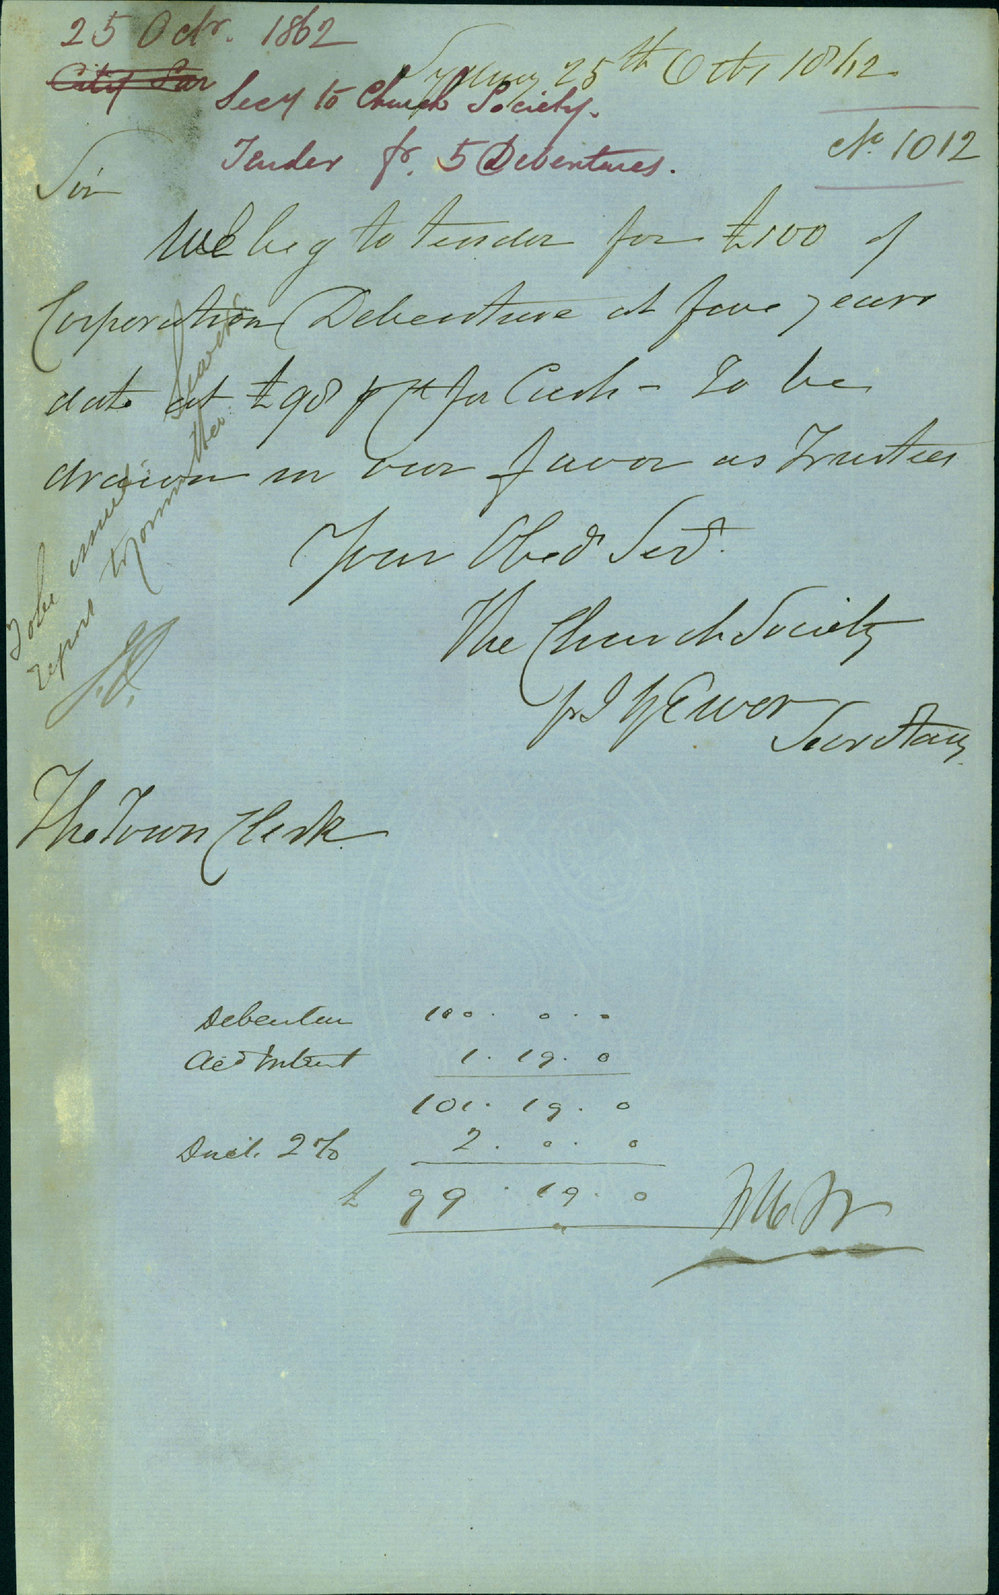 25 Octr. 1862
City Sur
Sydney 25th Octr 1862
Secy to Church Society.
Tender fr. 5 Debentures.
No 1012
Sir
We beg to tender for £100 of
Corporation Debenture at five years
date at £98 p Ct for Cash - To be
drawn in our favor as Trustees
Your Obedt Servt.
The Church Society
Secretary
The Town Clerk
To be issued
report to former
Debenture 100. 0. 0
Accd Interest 1. 19. 0
101. 19. 0
2 % 2. 0. 0
£ 99. 19. 0